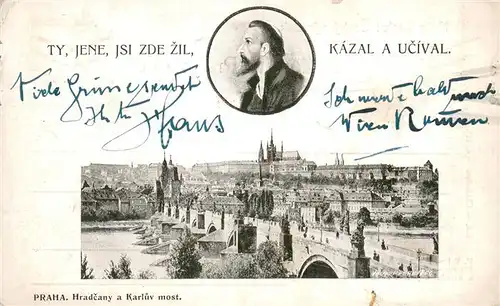 TY, JENE, JSI ZDE ŽIL,
KÁZAL A UČÍVAL.
Viele Grüße sendet
Hans
Ich werde bald nach
Wien
PRAHA. Hradčany a Karlův most.